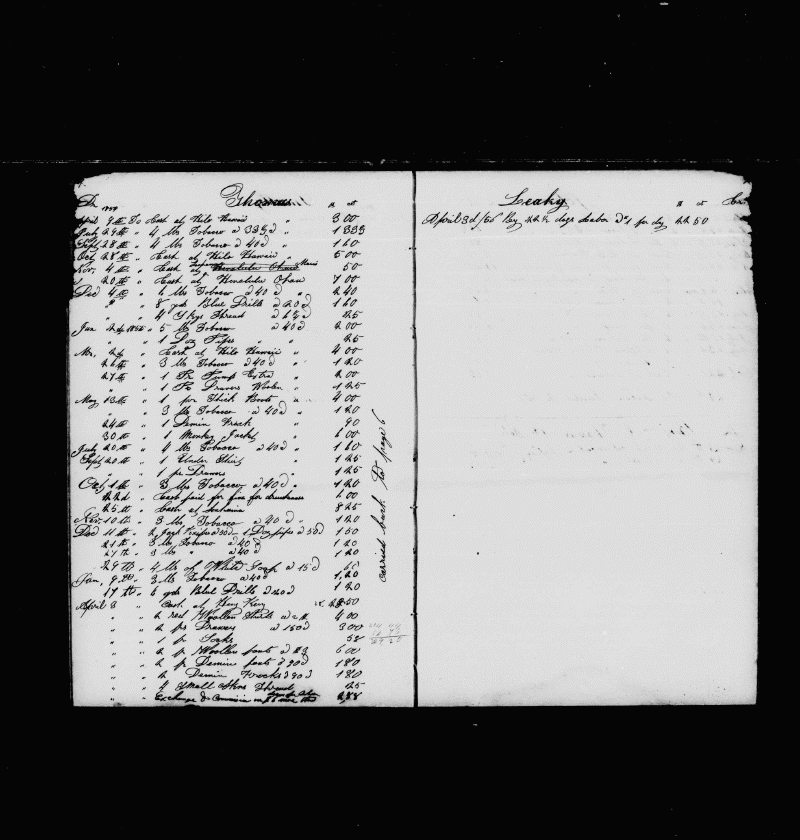 Dr Thomas $ ct
April 9th To Cash at Hilo Hawaii " 3 00
July 29th " 4 lbs Tobacco a 33⅓ " 1 333
Sept 28th " 4 lbs Tobacco a 40 " 1 60
Oct 28th " Cash at Hilo Hawaii " 5 00
Nov, 4th " Cash at Maui 50
" 20th " Cash at Honolulu Oahu 7 00
Dec 4th " 6 lbs Tobacco a 40 " 2 40
" " 8 yds Blue Drills a 20 1 60
" " 4 Thread a 6¼ 25
Jan 5 lbs Tobacco a 40 2 00
" " 1 Doz Pipes " " 25
" Cash at Hilo Hawaii " 4 00
26th " 3 lbs Tobacco a 40 " 1 20
27th " 1 Pr Pump Extra " 2 00
" " 1 Pr Drawers Woolen " 1 25
May 13th " 1 pr Thick Boots " 4 00
" 3 lbs Tobacco a 40 " 1 20
24th " 1 Denim Frock " 90
30th " 1 Monkey Jacket " 6 00
July 20th " 4 lbs Tobacco a 40 " 1 60
Sept 20th " 1 Under Shirt " 1 25
" " 1 pr Drawers " 1 25
Oct 1th " 3 lbs Tobacco a 40 " 1 20
22d " Cash paid for fine for drunkness 6 00
25th " Cash at Lahaina 8 25
Nov. 10th " 3 lbs Tobacco a 40 " 1 20
Dec 11th " 1 Doz pipes a 50 1 50
21th " 3 lbs Tobacco a 40 1 20
27th " 3 lbs " a 40 1 20
29th " 4 lbs of White Soap a 15 60
Jan, 9 " 3 lbs Tobacco a 40 1,20
17th " 6 yds Blue Drills a 20 1 20
April 3 Cash at Hong Kong 50
" " 2 red Woollen Shirts a 2 $ 4 00
" " 2 prs Drawers a 150 3 00
" " 1 pr Socks
" " 2 pr Woollen pants a $3 6 00
" " 2 pr Denim pants a 90 1 80
" " 2 Denim Frocks a 90 1 80
" " 4 Small Skns Thread 25
Exchange & Commission
carried back to page 6
Leaky $ ct
April 3d/56 By 22½ days Labor a $1 per day 22 50